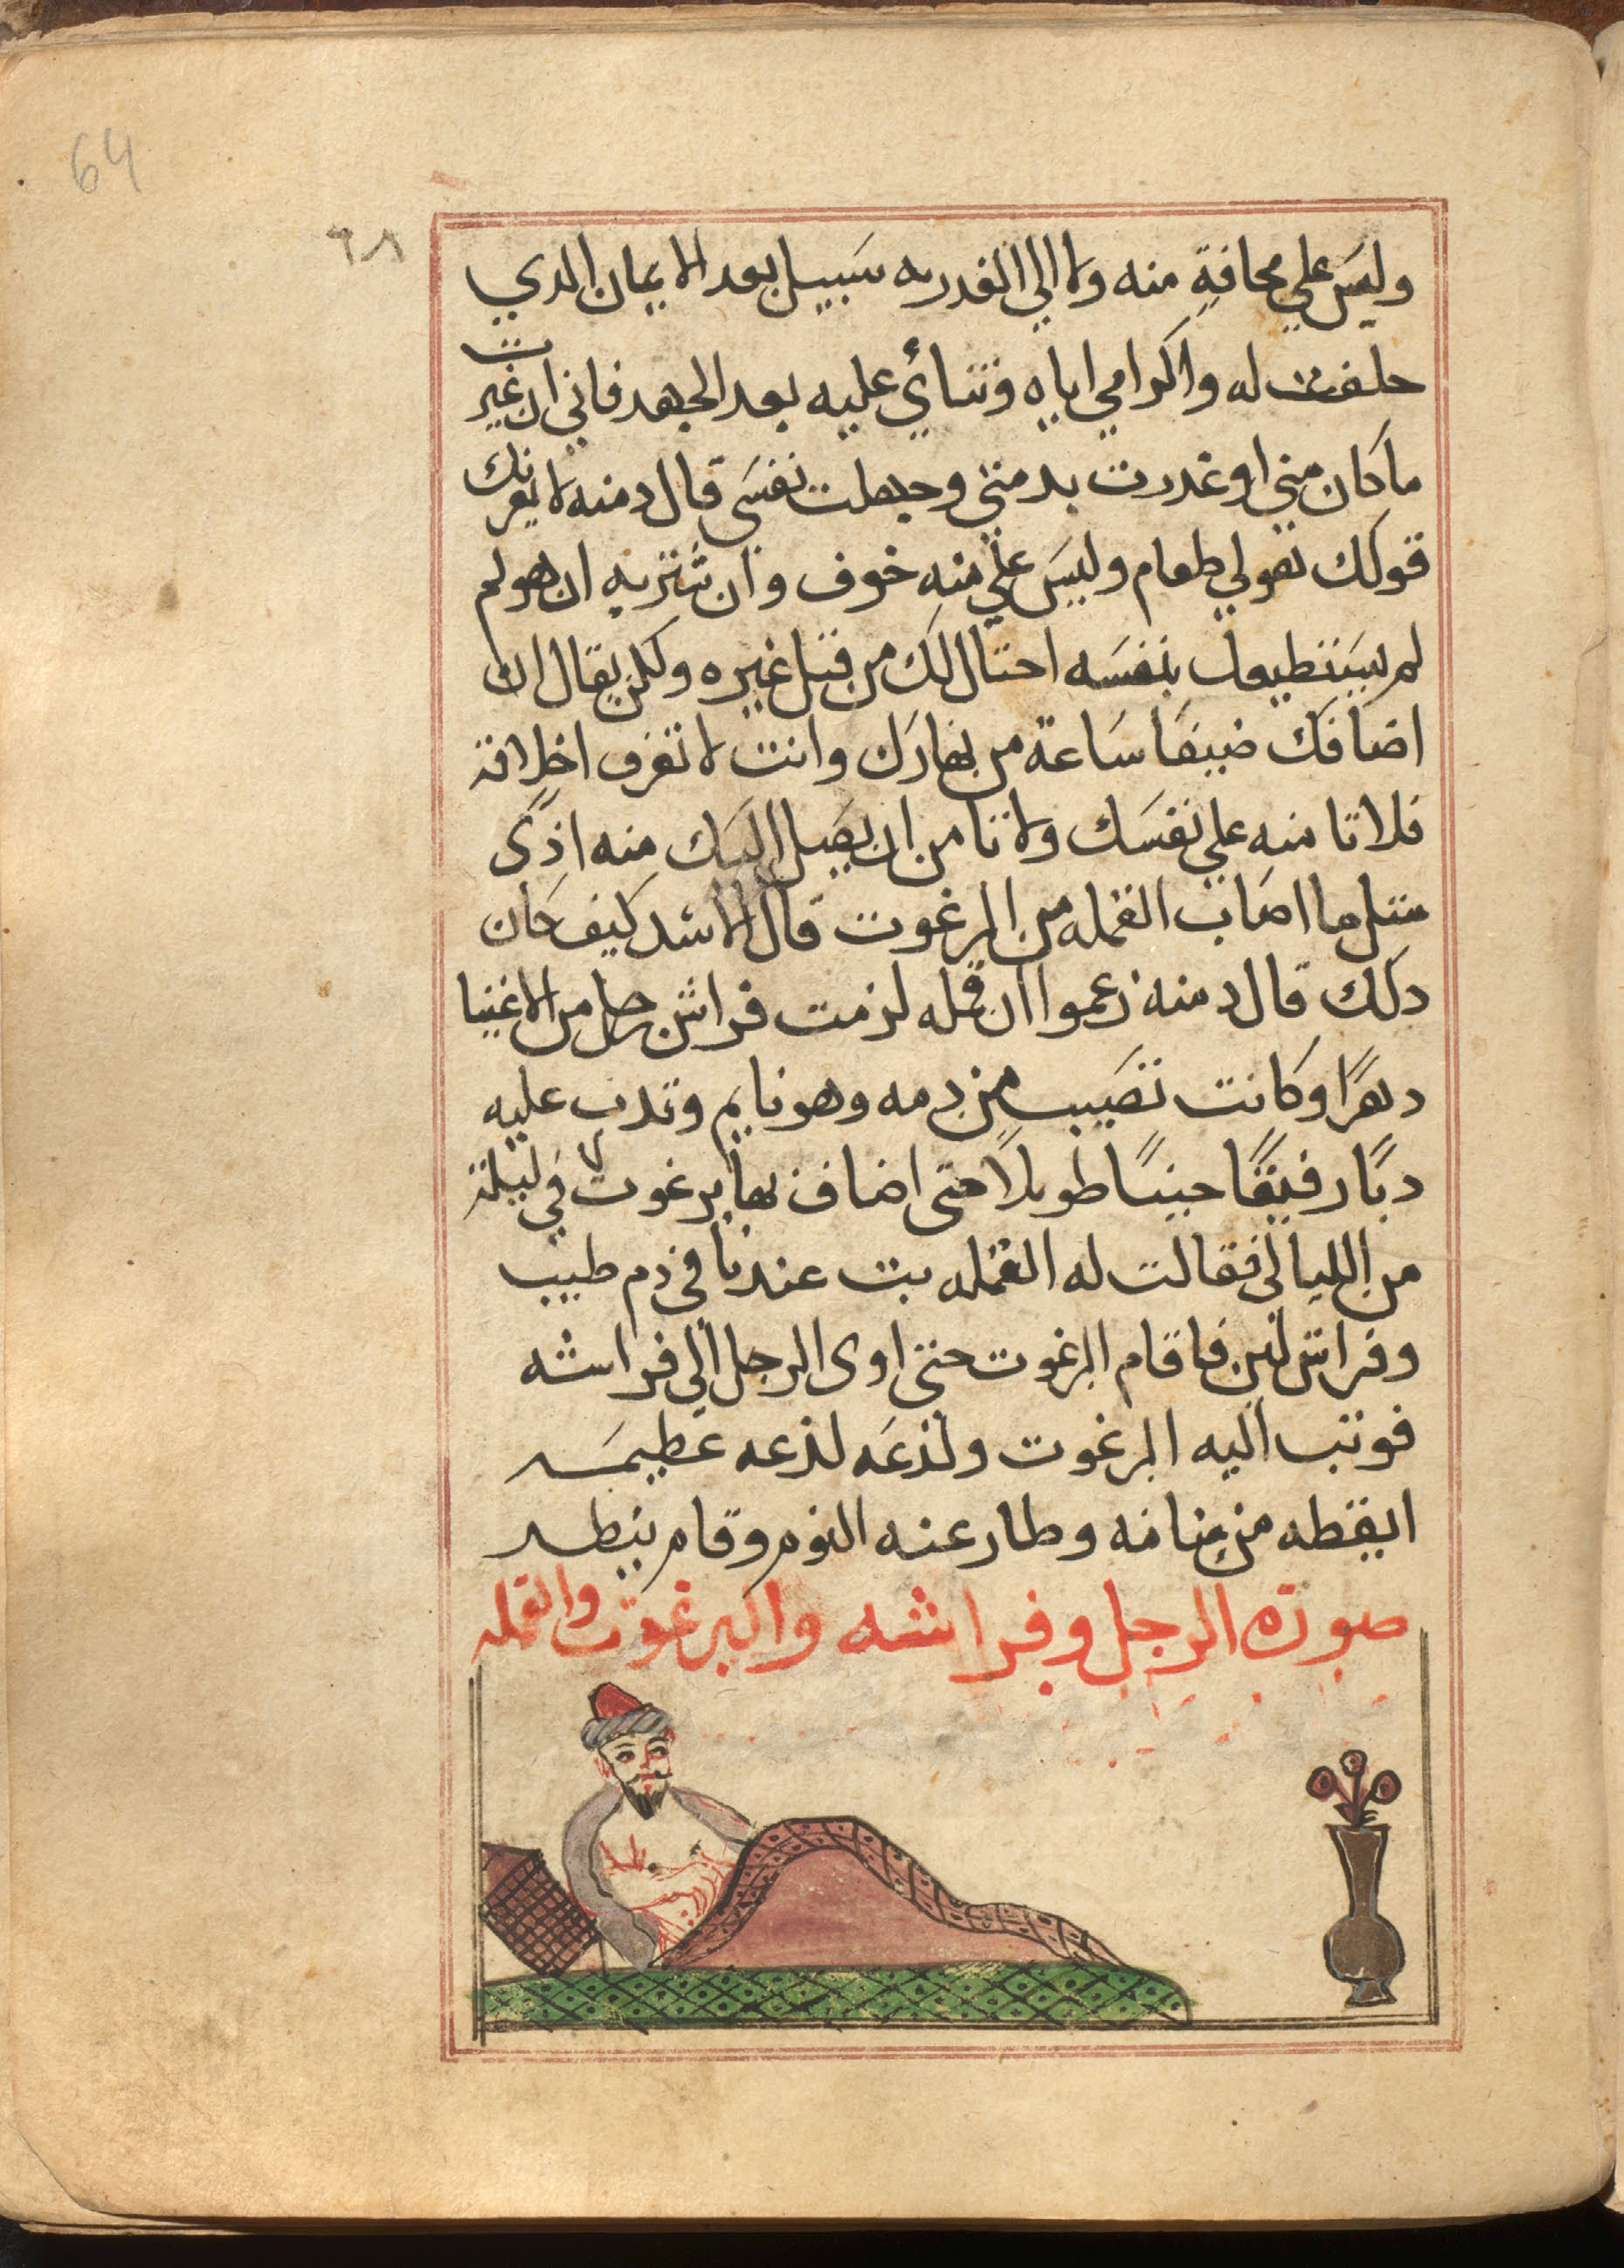 64
٦٨
وليس علي مخافة منه ولا الي الغدر به سبيل بعد الايمان الدي
حلفت له واكرامي اياه وثنائي عليه بعد الجهد فاني ان غيرت
ما كان مني او غدرت بدمتي وجهلت نفسي قال دمنه لا يغرنك
قولك هو لي طعام وليس علي منه خوف وان شتربه ان هو لم
لم يستطيعك بنفسه احتال لك من قبل غيره ولكن يقال ان
اضافك ضيفا ساعة من نهارك وانت لا تعرف اخلاقه
فلا تامنه علي نفسك ولا تامن ان يصل اليك منه اذًى
مثل ما اصاب القمله من البرغوت قال الاسد كيف كان
دلك قال دمنه زعموا ان قمله لزمت فراش رجل من الاغنيا
دهرًا وكانت تصيب من دمه وهو نايم وتدب عليه
دبًا رفيقًا حينًا طويلًا حتى اضاف بها برغوت في ليلة
من الليالي فقالت له القمله بت عندنا في دم طيب
وفراش لين فاقام البرغوت حتى اوى الرجل الي فراشه
فوتب اليه البرغوت ولذعه لذعه عظيمه
ايقظه من منامه وطار عنه النوم وقام ينظر
صورة الرجل وفراشه والبرغوت والقمله